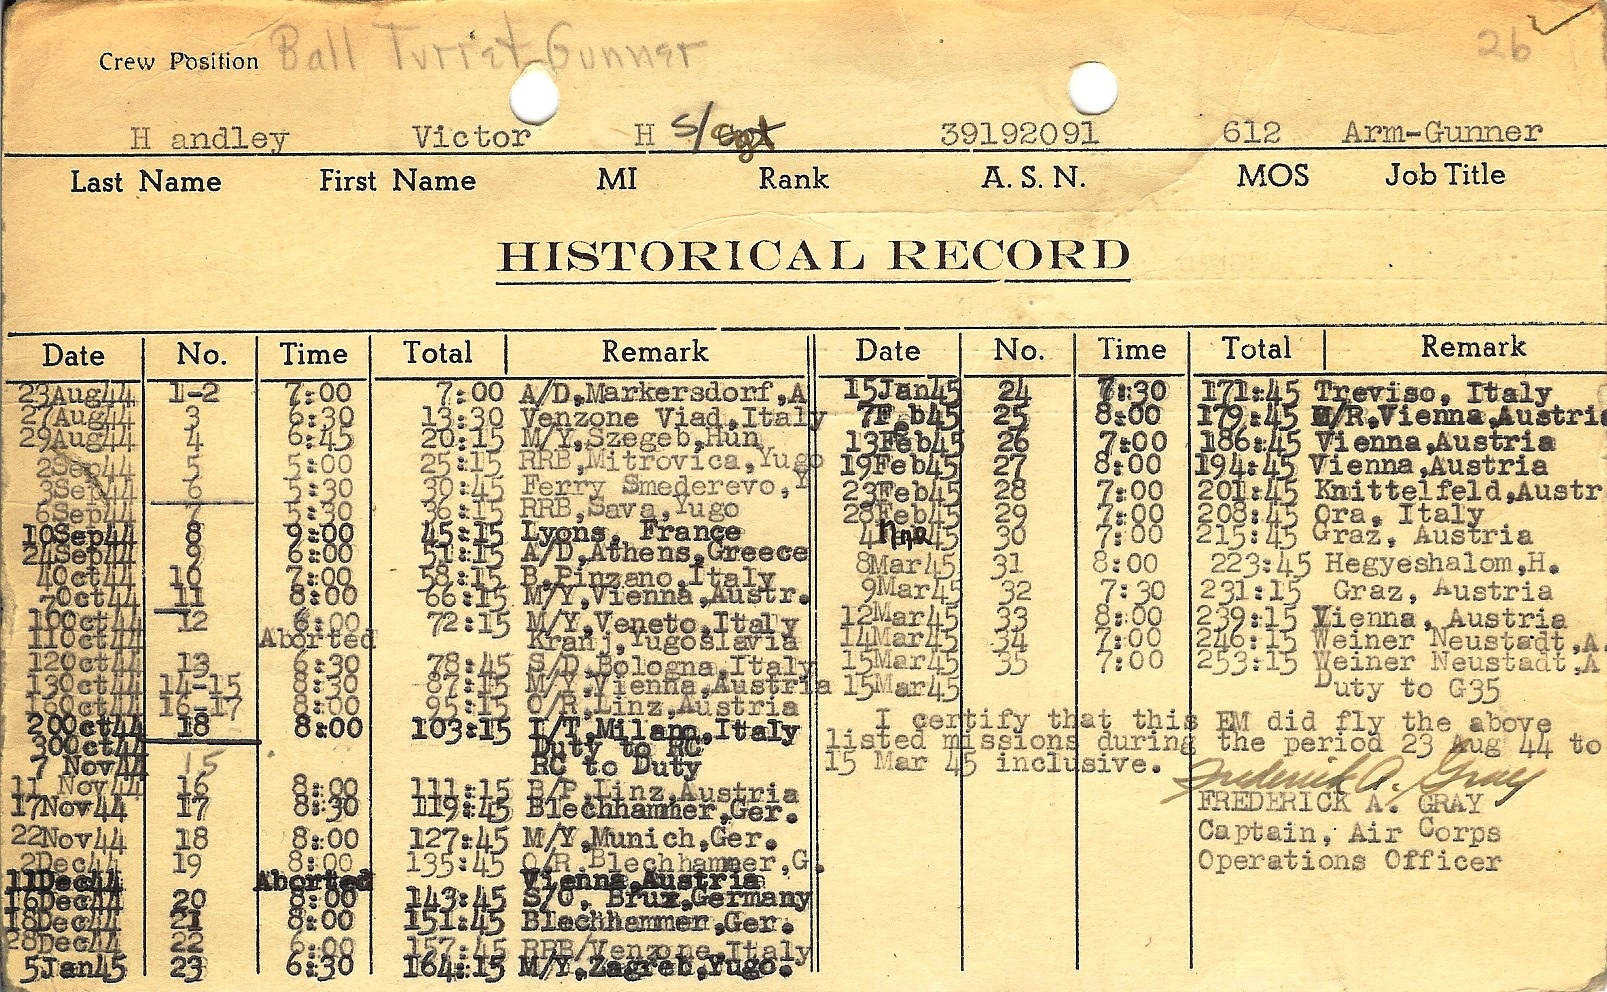 Crew Position Ball Turret Gunner 26
H andley Victor H S/Sgt 39192091 612 Arm-Gunner
Last Name First Name MI Rank A. S. N. MOS Job Title
HISTORICAL RECORD
Date No. Time Total Remark Date No. Time Total Remark
23Aug44 1-2 7:00 7:00 A/D,Markersdorf,A
27Aug44 3 6:30 13:30 Venzone Viad,Italy
29Aug44 4 6:45 20:15 M/Y,Szegeb,Hun
2Sep44 5 5:00 25:15 RRB,Mitrovica,Yugo
3Sep44 6 5:30 30:45 Ferry Smederevo,Y
6Sep44 7 5:30 36:15 RRB,Sava,Yugo
10Sep44 8 9:00 45:15 Lyons, France
24Sep44 9 6:00 51:15 A/D,Athens,Greece
4Oct44 10 7:00 58:15 B,Pinzano,Italy
7Oct44 11 8:00 66:15 M/Y,Vienna,Austr.
10Oct44 12 6:00 72:15 M/Y,Veneto,Italy
11Oct44 Aborted Kranj,Yugoslavia
12Oct44 13 6:30 78:45 S/D,Bologna,Italy
13Oct44 14-15 8:30 87:15 M/Y,Vienna,Austria
16Oct44 16-17 8:00 95:15 O/R,Linz,Austria
20Oct44 18 8:00 103:15 I/T,Milano,Italy
30Oct44 Duty to RC
7 Nov44 15 RC to Duty
11 Nov44 16 8:00 111:15 B/P,Linz,Austria
17Nov44 17 8:30 119:45 Blechhammer,Ger.
22Nov44 18 8:00 127:45 M/Y,Munich,Ger.
2Dec44 19 8:00 135:45 O/R,Blechhammer,G.
11Dec44 Aborted Vienna,Austria
16Dec44 20 8:00 143:45 S/O, Brux,Germany
18Dec44 21 8:00 151:45 Blechhammer,Ger.
28Dec44 22 6:00 157:45 RRB/Venzone,Italy
5Jan45 23 6:30 164:15 M/Y,Zagreb,Yugo.
15Jan45 24 7:30 171:45 Treviso, Italy
7Feb45 25 8:00 179:45 M/R,Vienna,Austria
13Feb45 26 7:00 186:45 Vienna,Austria
19Feb45 27 8:00 194:45 Vienna,Austria
23Feb45 28 7:00 201:45 Knittelfeld,Austr
28Feb45 29 7:00 208:45 Ora, Italy
4Mar45 30 7:00 215:45 Graz, Austria
8Mar45 31 8:00 223:45 Hegyeshalom,H.
9Mar45 32 7:30 231:15 Graz, Austria
12Mar45 33 8:00 239:15 Vienna, Austria
14Mar45 34 7:00 246:15 Weiner Neustadt,A.
15Mar45 35 7:00 253:15 Weiner Neustadt,A
15Mar45 Duty to G35
I certify that this EM did fly the above
listed missions during the period 23 Aug 44 to
15 Mar 45 inclusive.
Frederick A. Gray
FREDERICK A. GRAY
Captain, Air Corps
Operations Officer